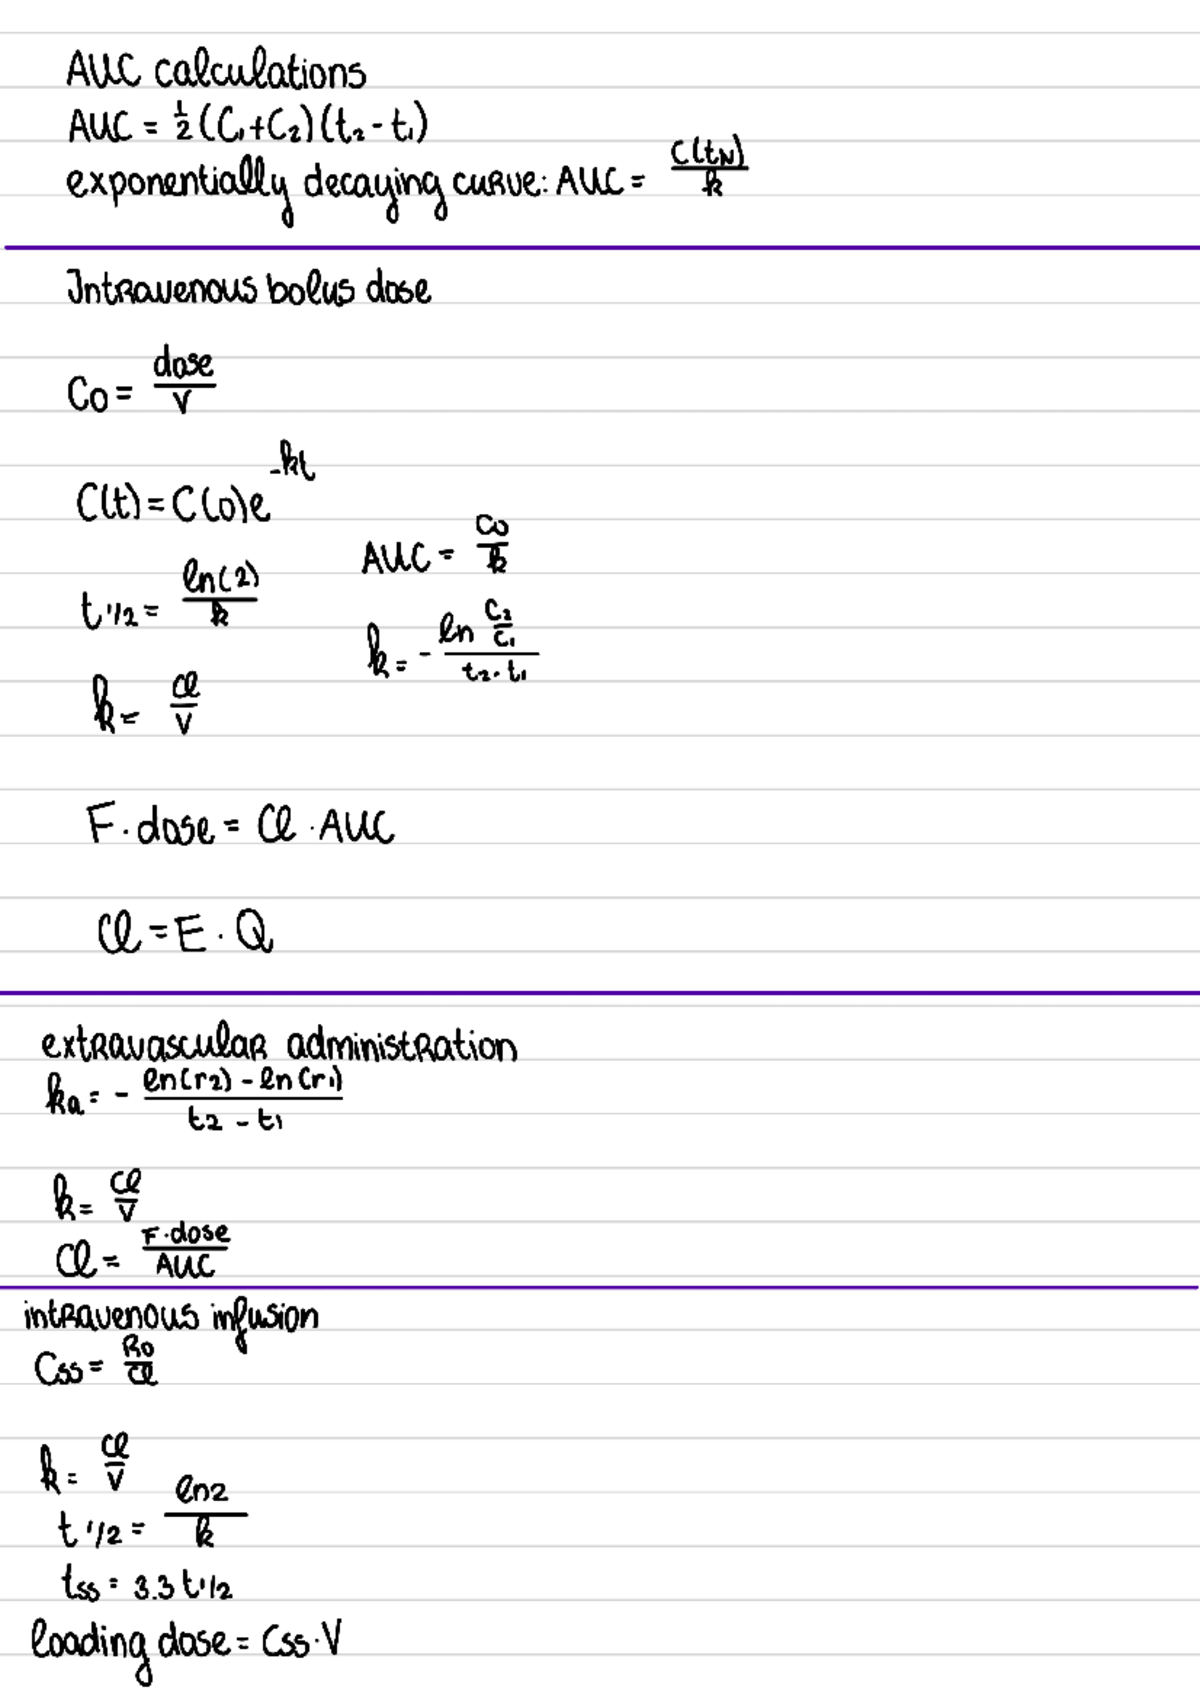 AUC calculations
AUC = ½(C₁+C₂)(t₂-t₁)
exponentially decaying curve: AUC = C(tN)/k
Intravenous bolus dose
Co = dose/V
C(t) = C(0)e^-kt
AUC = Co/k
t 1/2 = ln(2)/k
k = - ln C₂/C₁ / t₂-t₁
k = Cl/V
F · dose = Cl · AUC
Cl = E · Q
extravascular administration
ka = - ln(r2) - ln(r1) / t2 - t1
k = Cl/V
Cl = F·dose/AUC
intravenous infusion
Css = R0/Cl
k = Cl/V
t 1/2 = ln2/k
tss = 3.3 t1/2
loading dose = Css·V